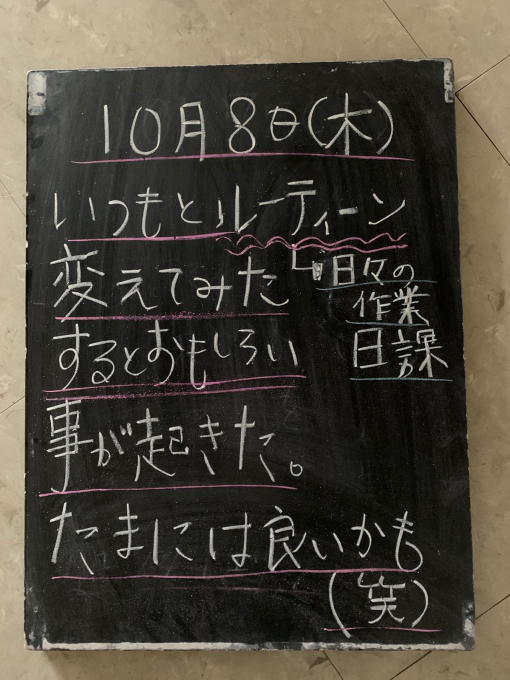 10月8日(木)
いつもとルーティーン
変えてみた
日々の
作業
日課
するとおもしろい
事が起きた。
たまには良いかも
(笑)